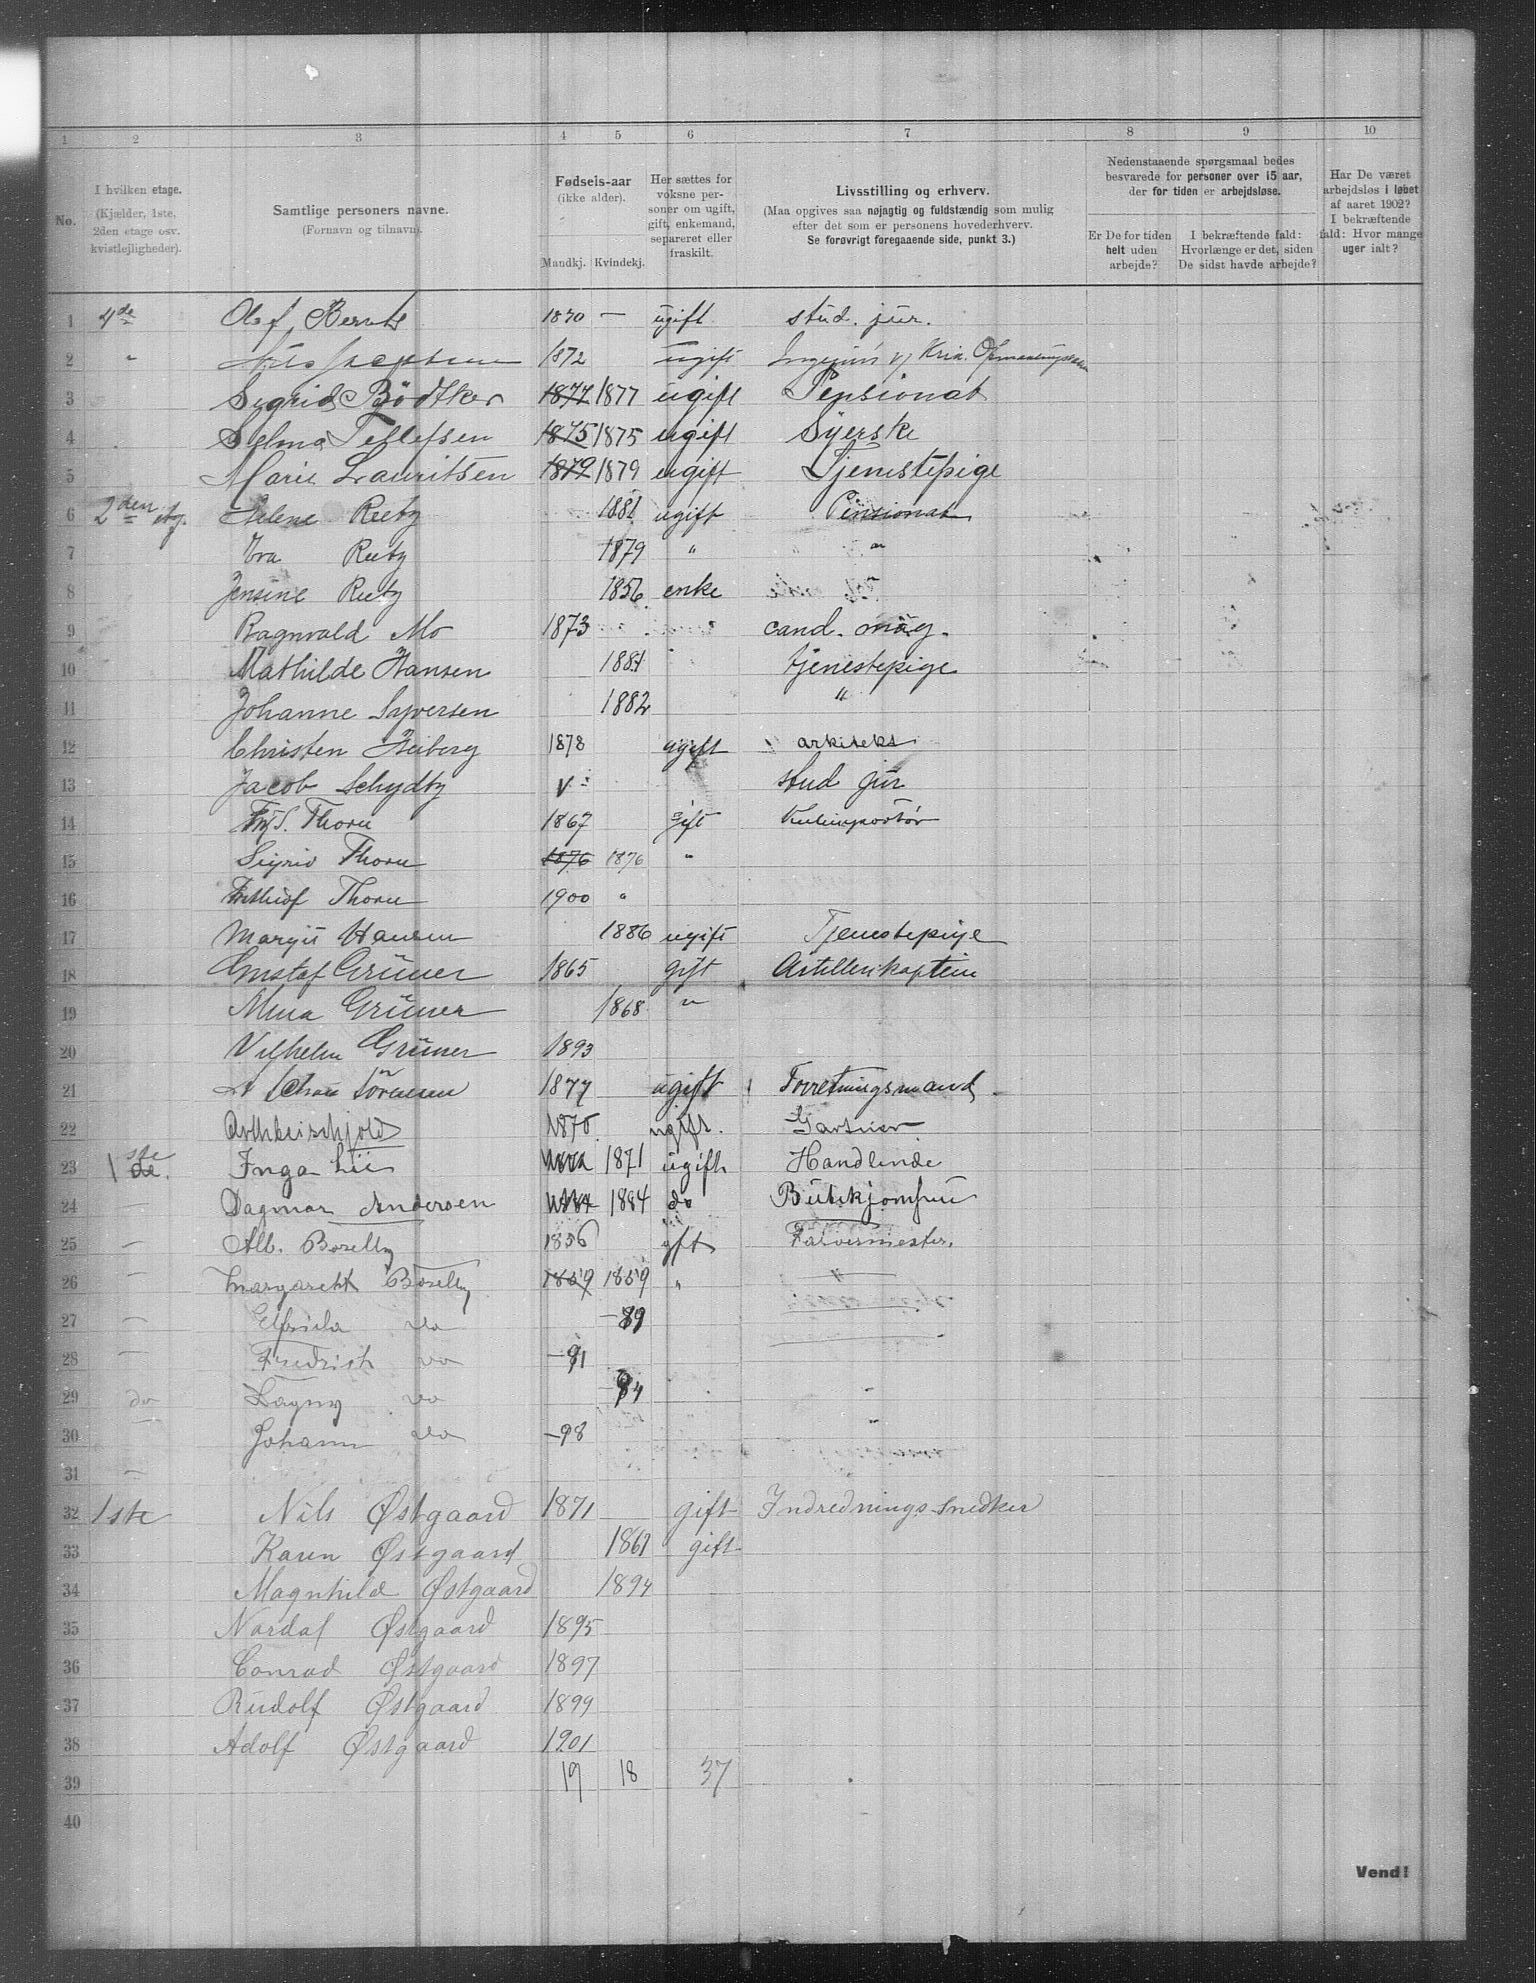 1 2 3 4 5 6 7 8 9 10
No.
I hvilken etage.
(Kjælder, 1ste,
2den etage osv.
kvistlejligheder).
Samtlige personers navne.
(Fornavn og tilnavn).
Fødsels-aar
(ikke alder).
Mandkj. Kvindekj.
Her sættes for
voksne per-
soner om ugift,
gift, enkemand,
separeret eller
fraskilt.
Livsstilling og erhverv.
(Maa opgives saa nøjagtig og fuldstændig som mulig
efter det som er personens hovederhverv.
Se forøvrigt foregaaende side, punkt 3.)
Nedenstaaende spørgsmaal bedes
besvarede for personer over 15 aar,
der for tiden er arbejdsløse.
Er De for tiden
helt uden
arbejde?
I bekræftende fald:
Hvorlænge er det, siden
De sidst havde arbejde?
Har De været
arbejdsløs i løbet
af aaret 1902?
I bekræftende
fald: Hvor mange
uger ialt?
1 4de Olaf Bernts 1870 — ugift stud. jur.
2 " 1872 ugift
3 Sigrid Bödtker 1877 1877 ugift Pensionat
4 Selma Tellefsen 1875 1875 ugift Syerske
5 Marie Lauritsen 1879 1879 ugift Tjenestepige
6 2den etg. Helene Reetz 1881 ugift Pensionat
7 Eva Reetz 1879 " " "
8 Jensine Reetz 1856 enke "
9 Ragnvald Mo 1873 cand. mag.
10 Mathilde Hansen 1881 tjenestepige
11 Johanne Syversen 1882 "
12 Christen Heiberg 1878 ugift arkitekt
13 Jacob Schydtz stud jur
14 Thorn 1867 gift
15 Sigrid Thorn 1876 1876 "
16 Thorn 1900 "
17 Margit Hansen 1886 ugift Tjenestepige
18 Gustaf Grüner 1865 gift Artillerikaptein
19 Mina Grüner 1868 "
20 Vilhelm Grüner 1893
21 Sörensen 1877 ugift Forretningsmand
22 1870 ugift. Gartner
23 1ste Inga Lie 1871 ugift Handlende
24 — Dagmar Andersen 1884 do Butikjomfru
25 — Alb. Boselly 1856 gift Farvermester.
26 — Margareth Boselly 1859 1859 " "
27 — Elfrida do —89
28 — Fredrich do —91
29 do Dagny do
30 Johann do —98
31 —
32 1ste Nils Østgaard 1871 gift Indrednings Snedker
33 Karen Østgaard 1861 gift
34 Magnhild Østgaard 1894
35 Nordal Østgaard 1895
36 Conrad Østgaard 1897
37 Rudolf Østgaard 1899
38 Adolf Østgaard 1901
39 19 18 37
40
Vend!